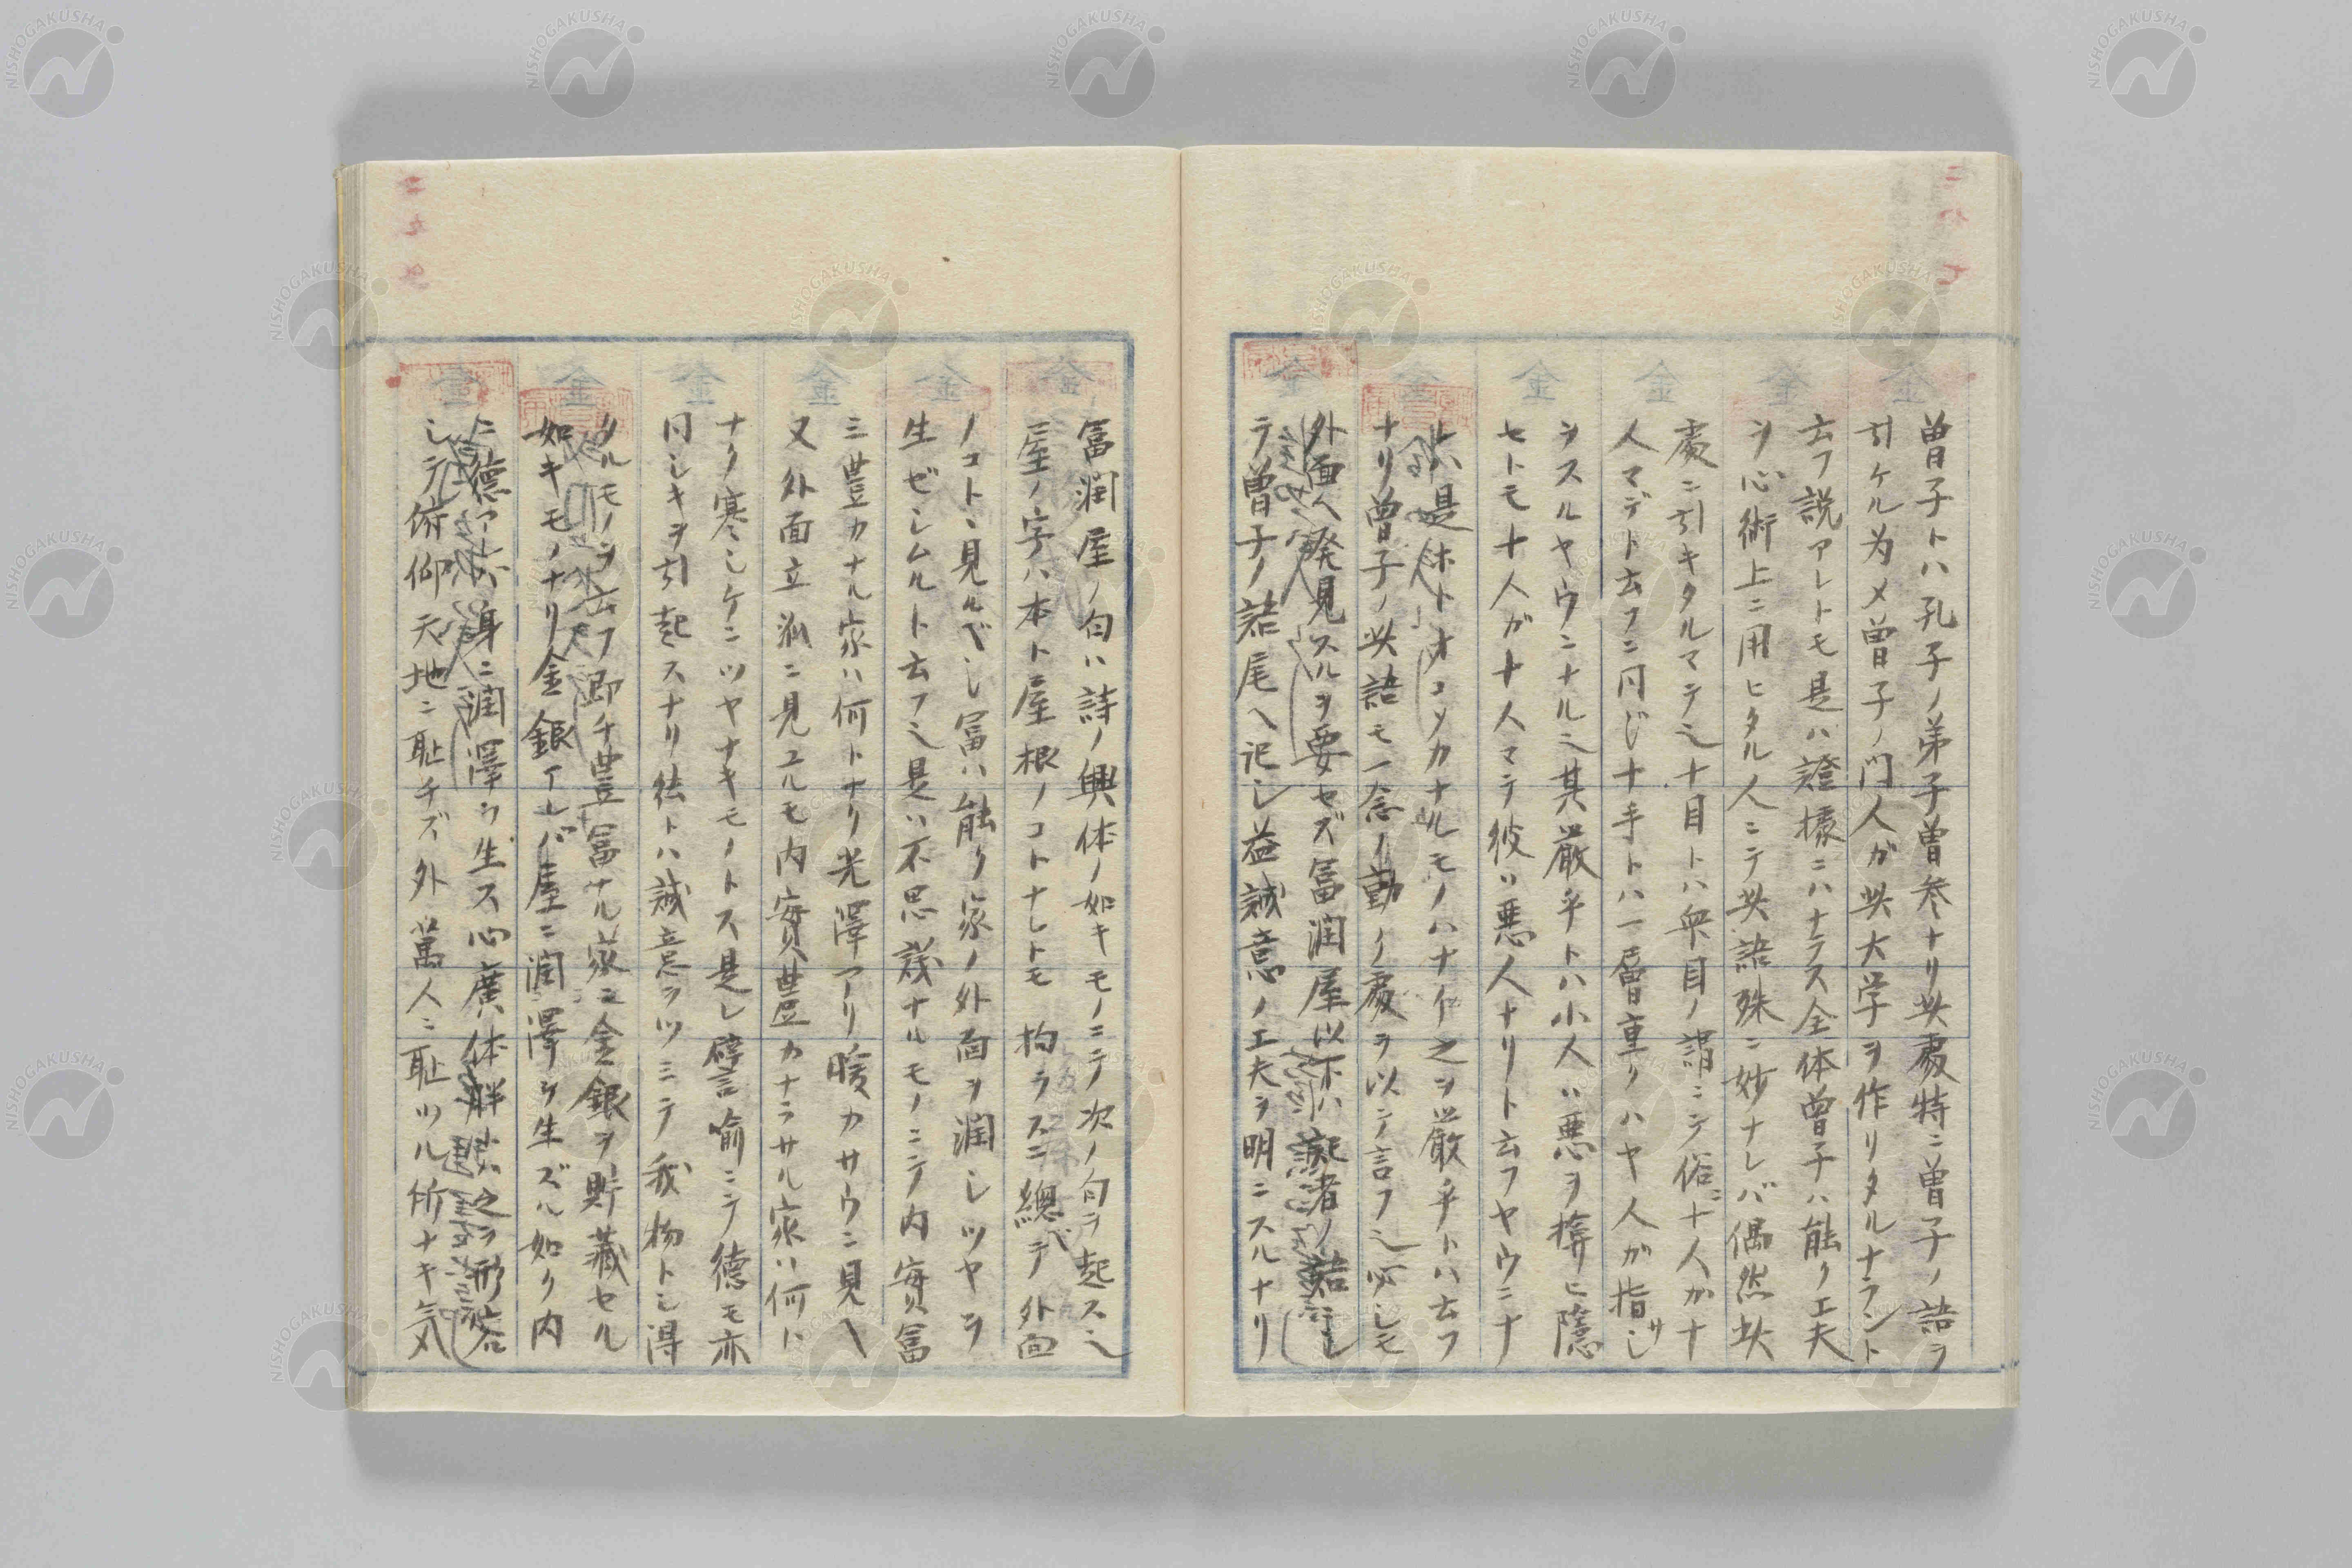 曽子トハ孔子ノ弟子曽参ナリ此處特ニ曽子ノ語ヲ
引ケル为メ曽子ノ门人ガ此大学ヲ作リタルナラント
云フ説アレトモ是ハ證據ニハナラス全体曽子ハ能ク工夫
ヲ心術上ニ用ヒタル人ニテ此語殊ニ妙ナレバ偶然此
處ニ引キタルマテ也十目トハ衆目ノ謂ニテ俗ニ十人カ十
人マデト云フニ同じ十手トハ一層重クハヤ人が指サし
ヲスルヤウニナル也其厳乎トハ小人ハ悪ヲ揜ヒ隠
セトモ十人が十人マテ彼ハ悪人ナリト云フヤウニナ
是ホトオコソカナルモノハナイ之ヲ厳乎トハ云フ
ナリ曽子ノ此語モ一念ノ動ク處ヲ以テ言フ也必しモ
外面ヘ発見スルヲ要セズ冨润屋以下ハ
テ曽子ノ語尾ヘ记し益誠意ノ工夫ヲ明ニスルナリ
冨润屋ノ句ハ詩ノ興体ノ如キモノニテ次ノ句ヲ起ス也
屋ノ字ハ本ト屋根ノコトナレトモ 拘ラズニ總ベテ外面
ノコトヽ見ルベし冨ハ能ク家ノ外面ヲ润しツヤヲ
生ゼシムルト云フ也是ハ不思議ナルモノニテ内實冨
ミ豊カナル家ハ何トナク光澤アリ暖カサウニ見ヘ
又外面立派ニ見ユルモ内實豊カナラサル家ハ何ト
ナク寒しケニツヤナキモノトス是レ譬喻ニテ德モ亦
同しキヲ引起スナリ徳トハ誠意ヲツミテ我物トし得
タルモノヲ云フ即チ豊冨ナル家ニ金銀ヲ貯藏セル
如キモノナリ金銀アレバ屋ニ润澤ヲ生ズル如ク内
ニ德アレバ身ニ润澤ヲ生ス心廣体胖ハ之ヲ形容
しテ俯仰天地ニ耻チズ外萬人ニ耻ツル所ナキ気